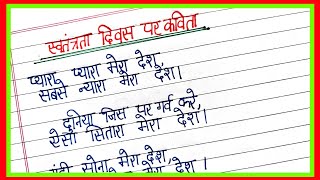 स्वतंत्रता दिवस पर कविता
प्यारा प्यारा मेरा देश,
सबसे न्यारा मेरा देश।
दुनिया जिस पर गर्व करे,
ऐसा सितारा मेरा देश।
सोना मेरा देश,